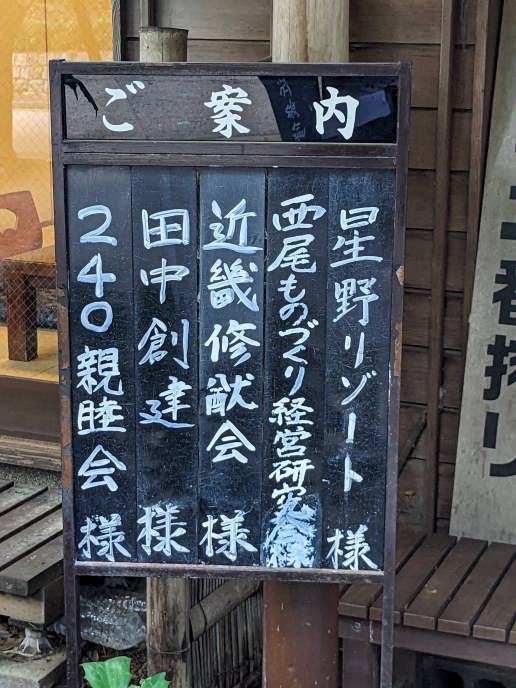 ご案内
星野リゾート 様
西尾ものづくり経営研究会様
近畿修猷会 様
田中創建 様
240親睦会 様
一番搾り